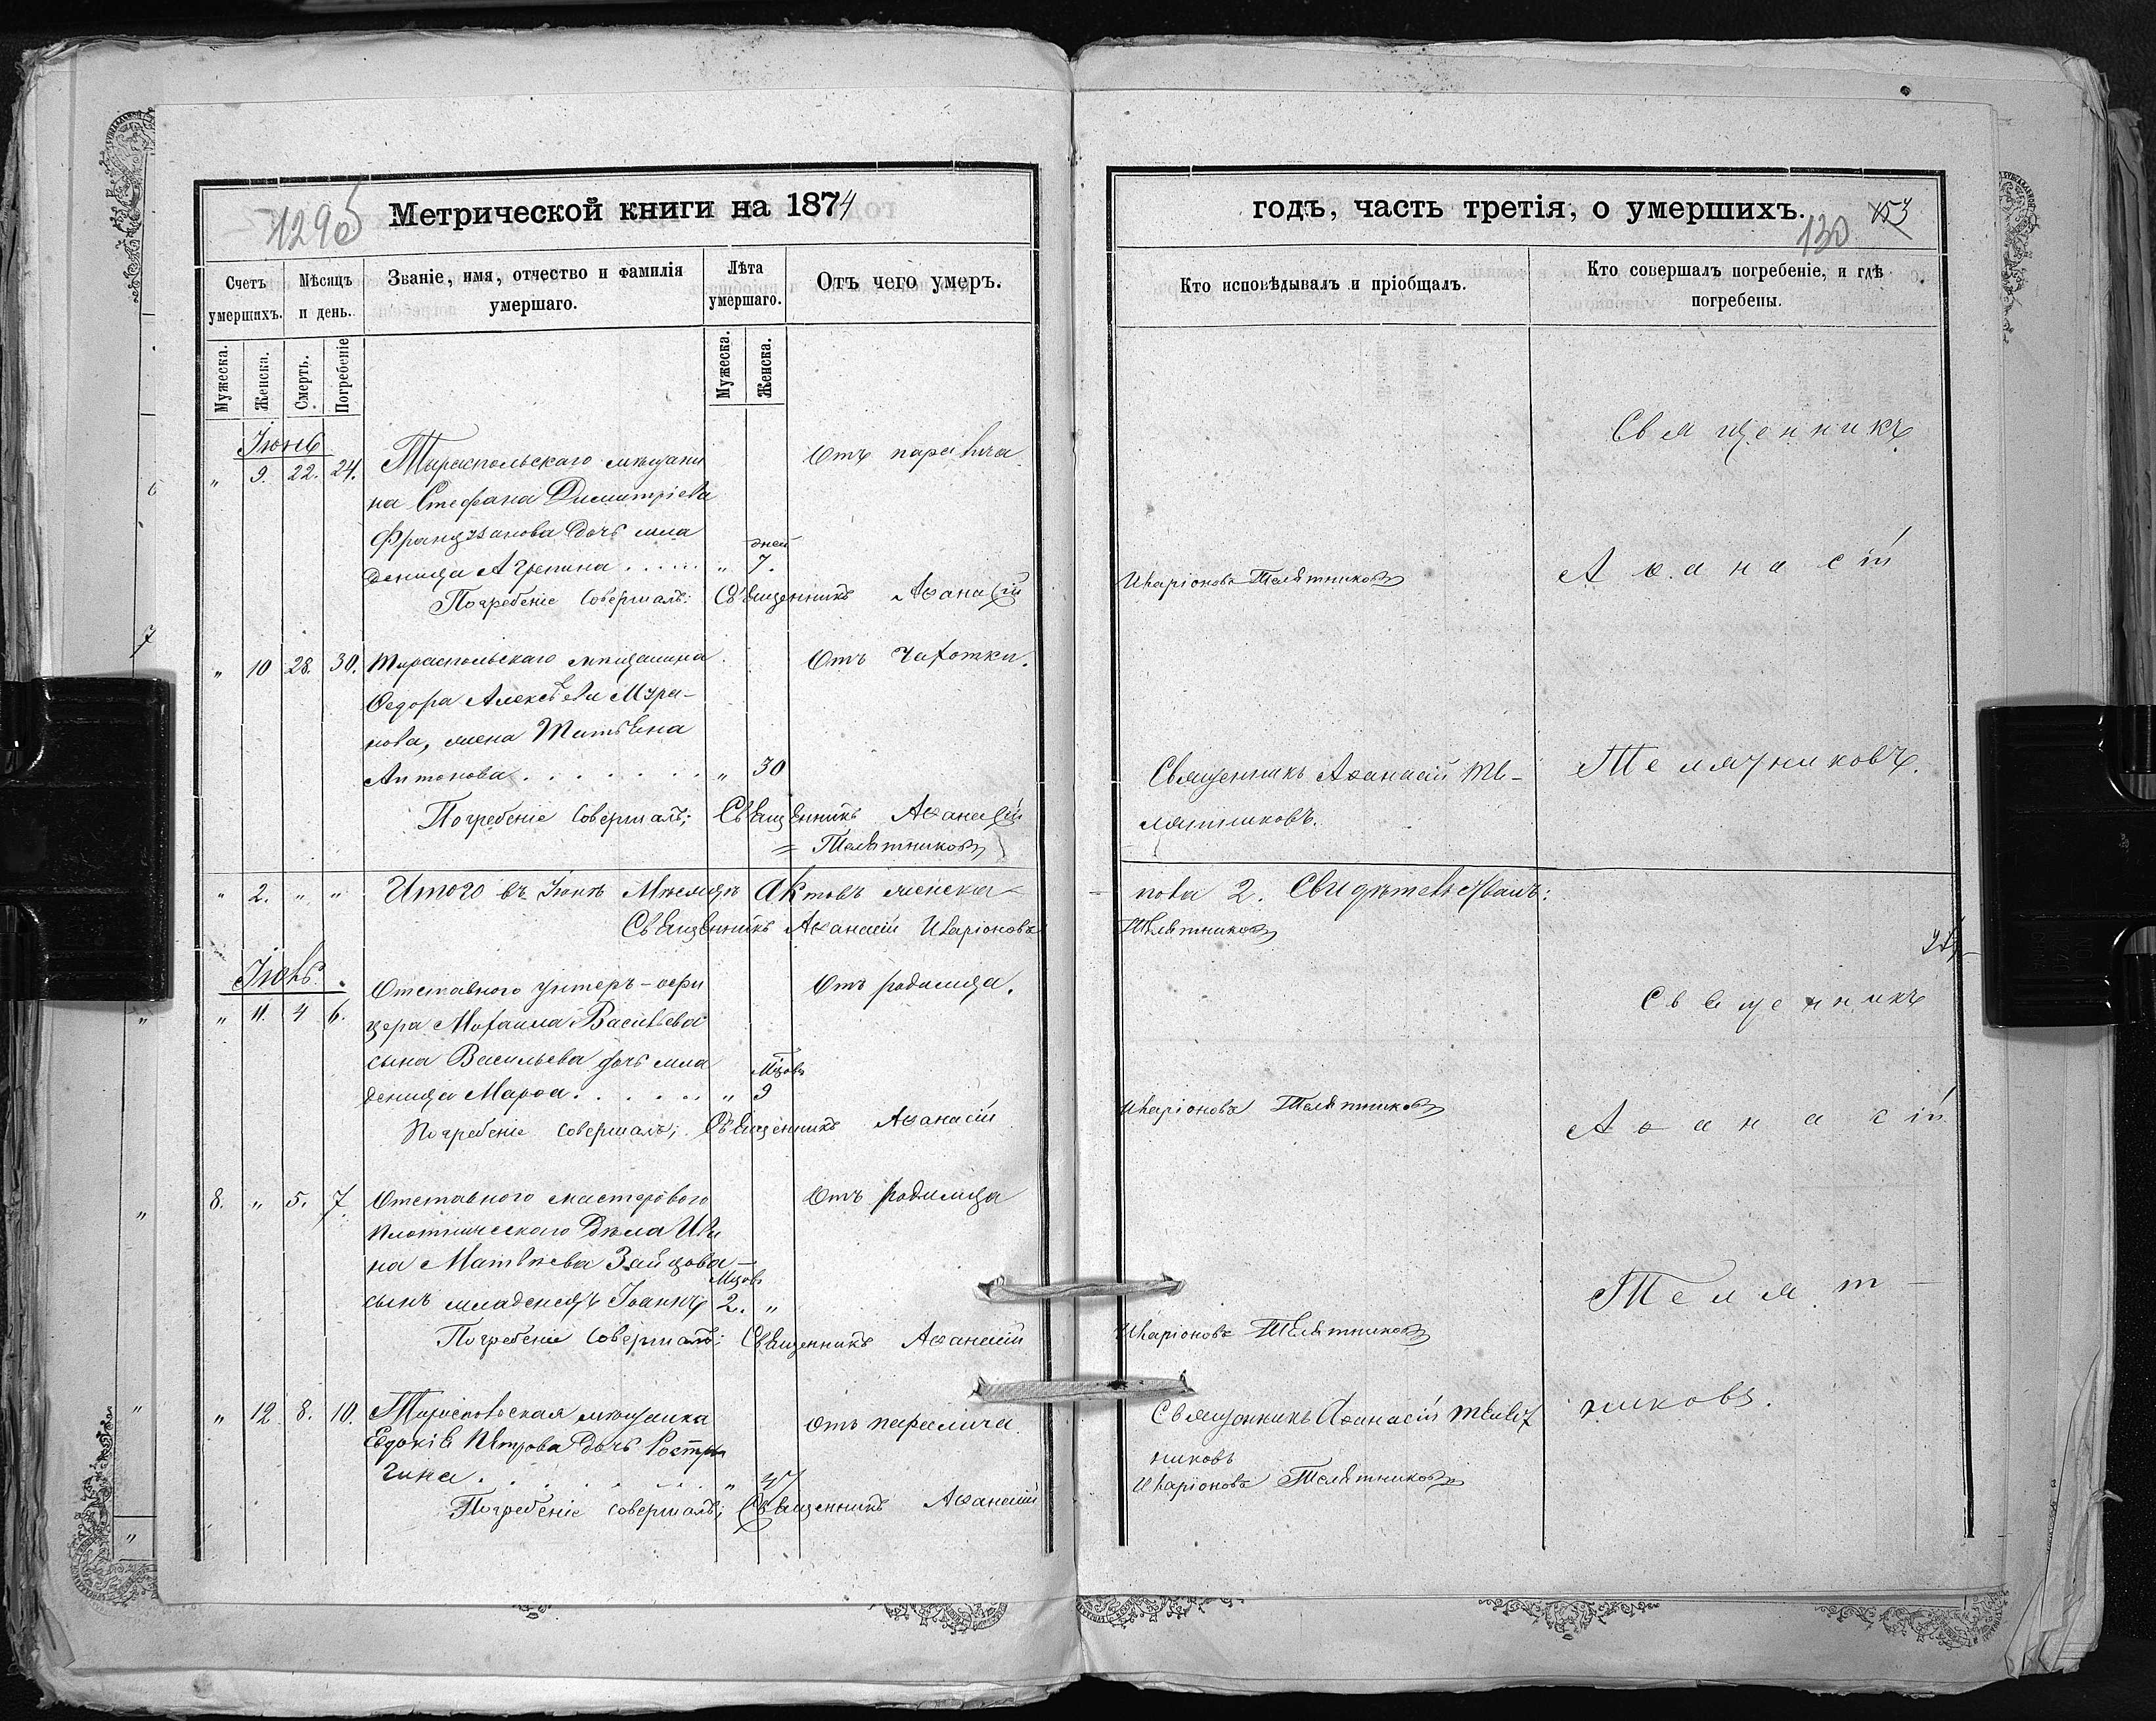 129об
Метрической книги на 1874
Счетъ умершихъ.
Мѣсяцъ и день.
Званіе, имя, отчество и фамилія умершаго.
Лѣта умершаго.
Отъ чего умеръ.
Мужеска.
Женска.
Смерть.
Погребеніе
Мужеска.
Женска.
Іюнь
" 9. 22. 24. Тираспольскаго мѣщани
на Стефана Димитріева
Французанова дочь мла
деница Агрепина . . . . . " 7. дней
Отъ паралича
Погребеніе совершалъ: Священникъ Аѳанасій
" 10 28. 30. Тираспольскаго мѣщанина
Ѳедора Алексѣева Мура-
нова, жена Татьяна
Антонова . . . . . . . " 30
Отъ чахотки.
Погребеніе совершалъ; Священникъ Аѳанасій
= Телятниковъ
" 2. " " Итого въ Іюнѣ Мѣсяцѣ Актовъ женска-
Священникъ Аѳанасій Иларіоновъ
Іюль.
" 11. 4 6. Отставного унтеръ-офи
цера Михаила Васильева
сына Васильева дочь мла
деница Марѳа . . . . . . " 9 Мцовъ
Отъ родимца.
Погребеніе совершалъ; Священникъ Аѳанасій
8. " 5. 7. Отставного мастерового
плотническаго дѣла Ива
на Матвѣева Зайцова-
сынъ младенецъ Іоаннъ 2. Мцовъ "
Отъ родимца
Погребеніе совершалъ: Священникъ Аѳанасій
" 12. 8. 10. Тираспольская мѣщанка
Евдокія Петрова дочь
. . . . . . . "
Отъ паралича.
Погребеніе совершалъ; Священникъ Аѳанасій
годъ, часть третія, о умершихъ.
130
153
Кто исповѣдывалъ и пріобщалъ.
Кто совершалъ погребеніе, и гдѣ погребены.
Иларіоновъ Телятниковъ
Священникъ Аѳанасій Те-
лятниковъ.
нова 2. Свидѣтельствалъ:
Телятниковъ
Иларіоновъ Телятниковъ
Иларіоновъ Телятниковъ
Священникъ Аѳанасій Телят
никовъ
Иларіоновъ Телятниковъ
Священникъ
Аѳанасій
Телятниковъ.
Священникъ
Аѳанасій
Телят-
никовъ.